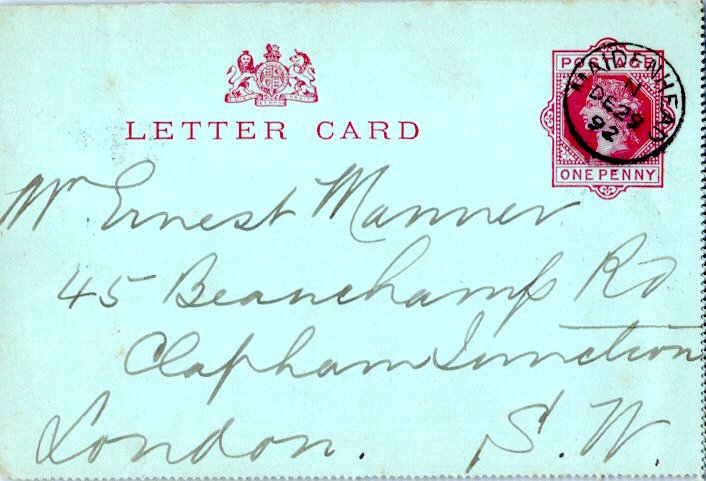 LETTER CARD
POSTAGE
ONE PENNY
MAIDENHEAD
N
DE 29
92
Mr Ernest Manner
45 Beauchamp Rd
Clapham Junction
London. S.W.